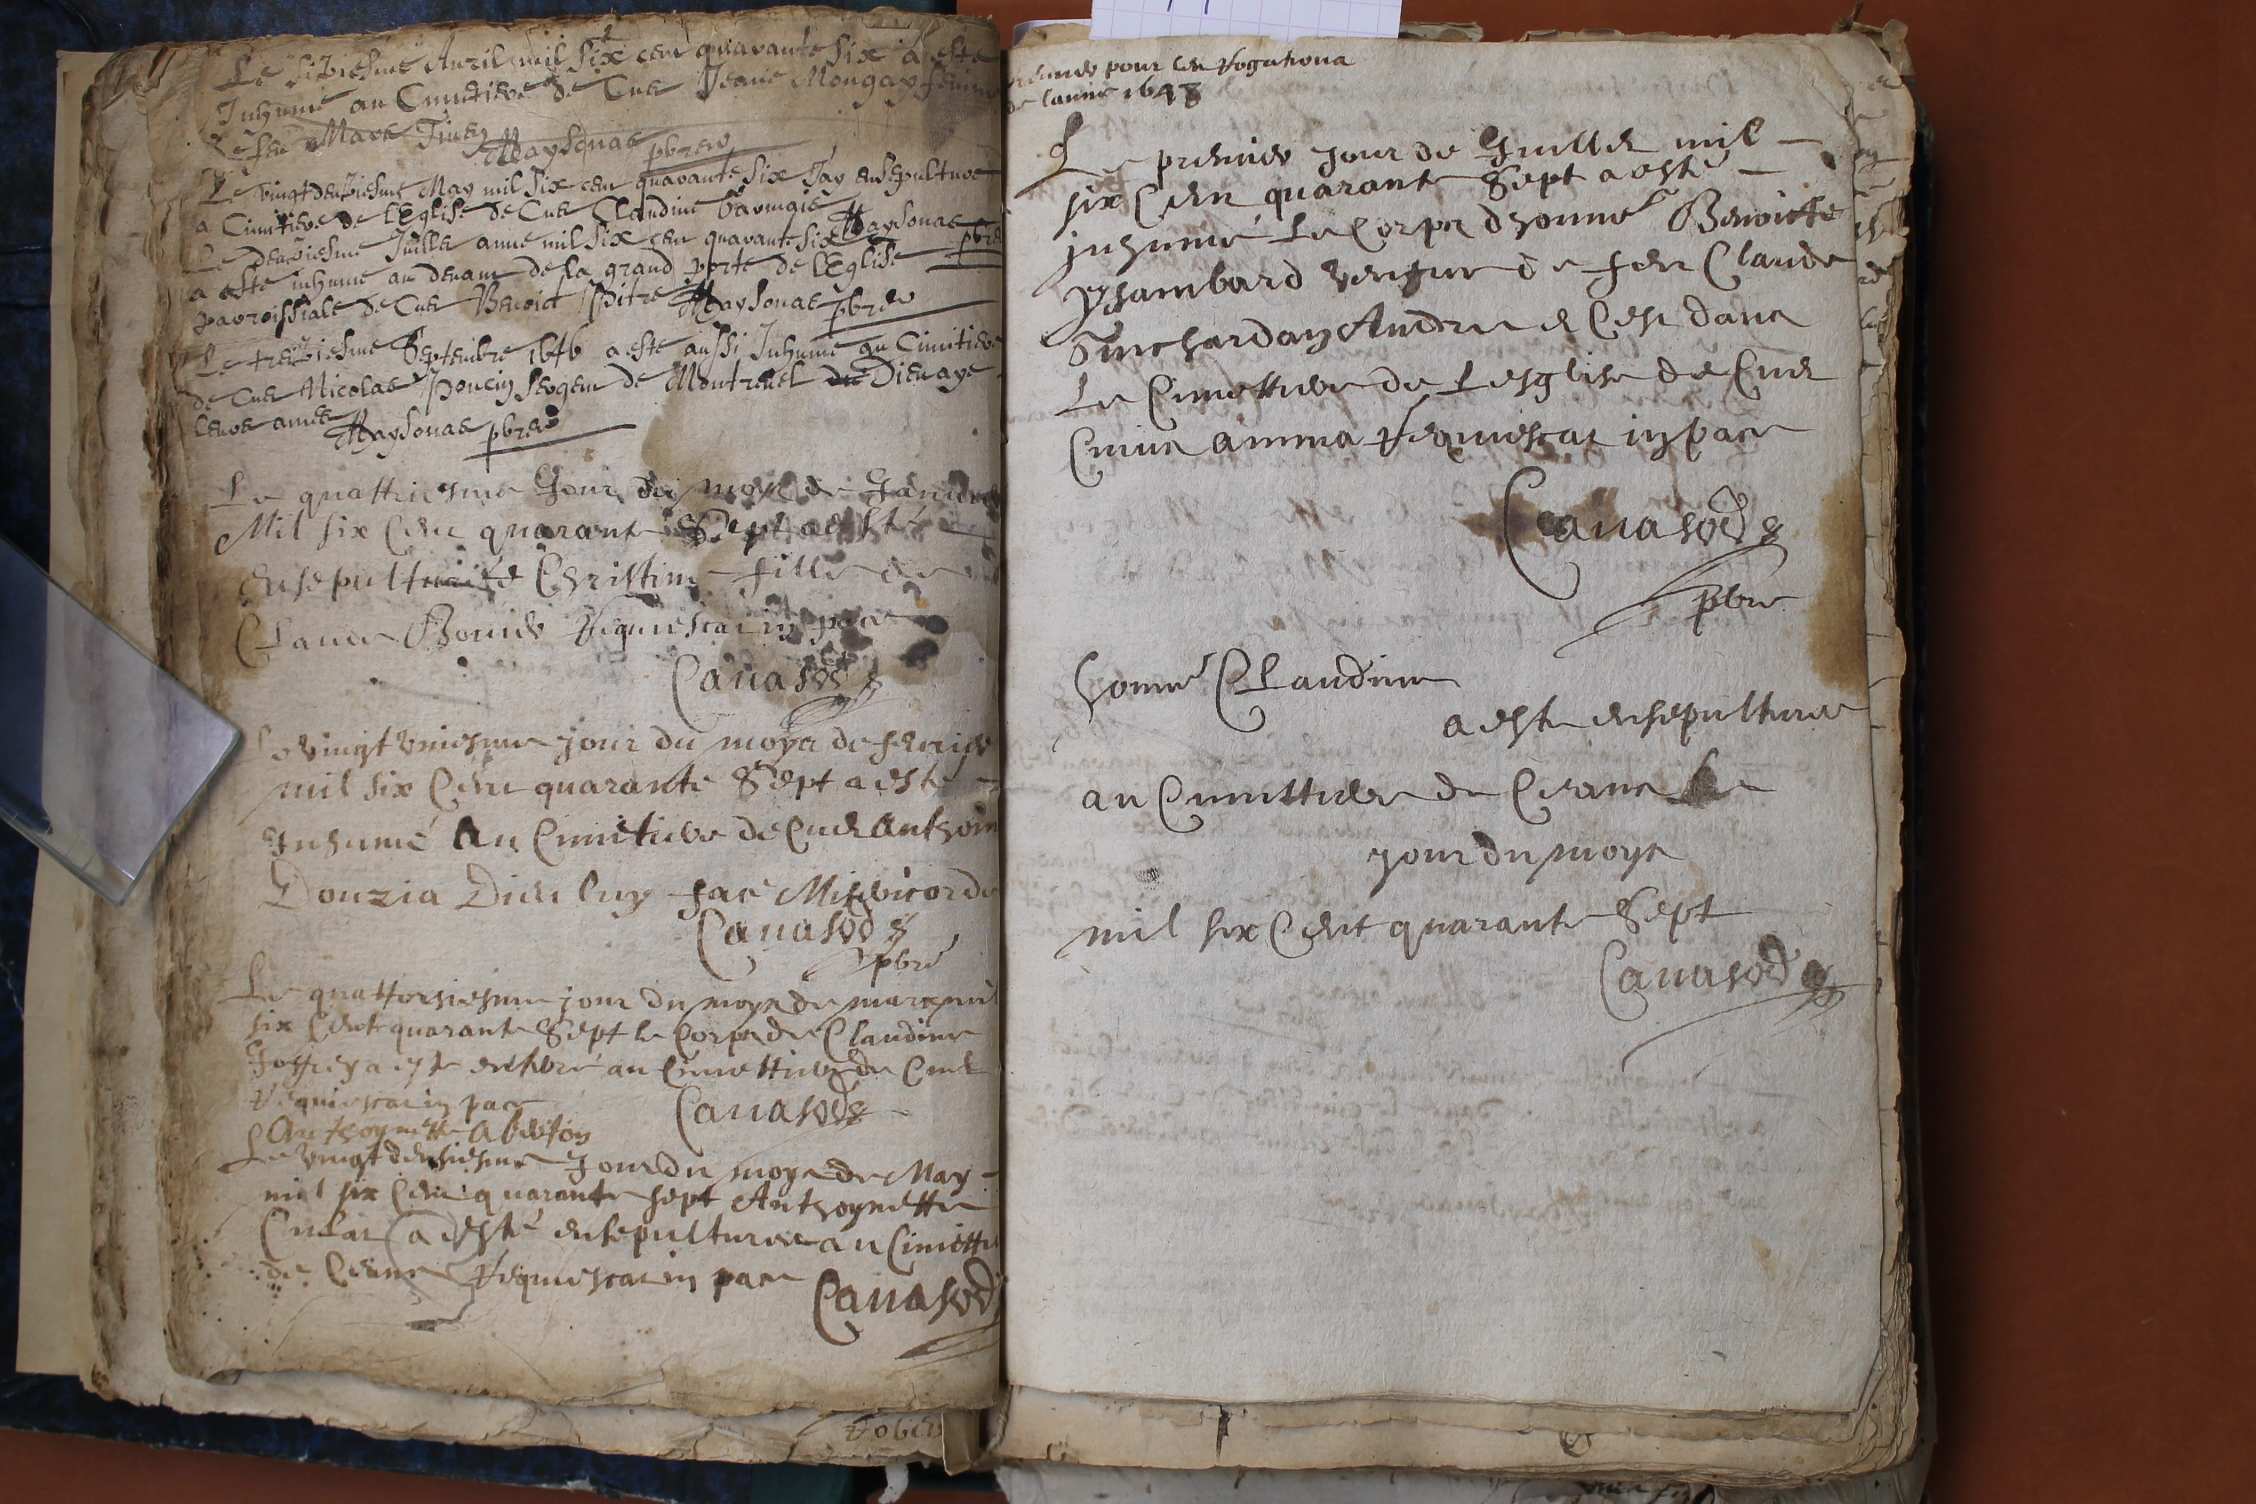 Le siziesme Auril mil six cent quarante six a este
Inhume au Cimitiere de Cuet Jeane Mongay femme
de feu Marc
Maysonas pbre
Le vingtdeuziesme May mil six cent quarante six Jay ensepulture
a Cimitiere de lEglise de Cuet Claudine
Maysonas pbre
Le deuziesme Juillet anne mil six cent quarante six
a este inhume au deuant de la grand porte de lEglise
parroissiale de Cuet Benoict Pitre Maysonas pbre
Le treziesme Septembre 1646 a este aussi Inhume au Cimitiere
de Cuet Nicolas Poncin sergent de Montreuel Dieu aye
leurs ames
Maysonas pbre
Le quattriesme Jour du moys de Januier
Mil six Cent quarante Sept a esté
ensepulturée Christine fille de
Claude Bouuier requiescat in pace
Cauasod
Le vingt vniesme jour du moys de feurier
mil six Cent quarante Sept a esté
Inhumé au Cimitiere de Cuet Anthoine
Donzia Dieu luy face Misericorde
Cauasod
pbre
Le quattorsiesme jour du moys de mars mil
six Cent quarante Sept le Corps de Claudine
Joffrey a esté enterré au Cimettiere de Cuet
requiescat in pace
Cauasod
Anthoynette
Le vingt deusiesme Jour du moys de May
mil six Cent quarante sept Anthoynette
Cullat a esté ensepulturee au Cimettiere
de Ceans requiescat in pace
Cauasod
pour les rogations
de lannee 1648
Le premier Jour de Juillet mil
six Cent quarante Sept a esté
inhumé Le Corps dhonne Benoiste
Ysambard vengue de feu Claude
Andre et Cest dans
Le Cimettiere de Lesglise de Cuet
Cuius anima requiescat in pace
Cauasod
pbre
honne Claudine
a este ensepulturee
au Cimettiere de Ceans Le
jour du moys
mil six Cent quarante Sept
Cauasod